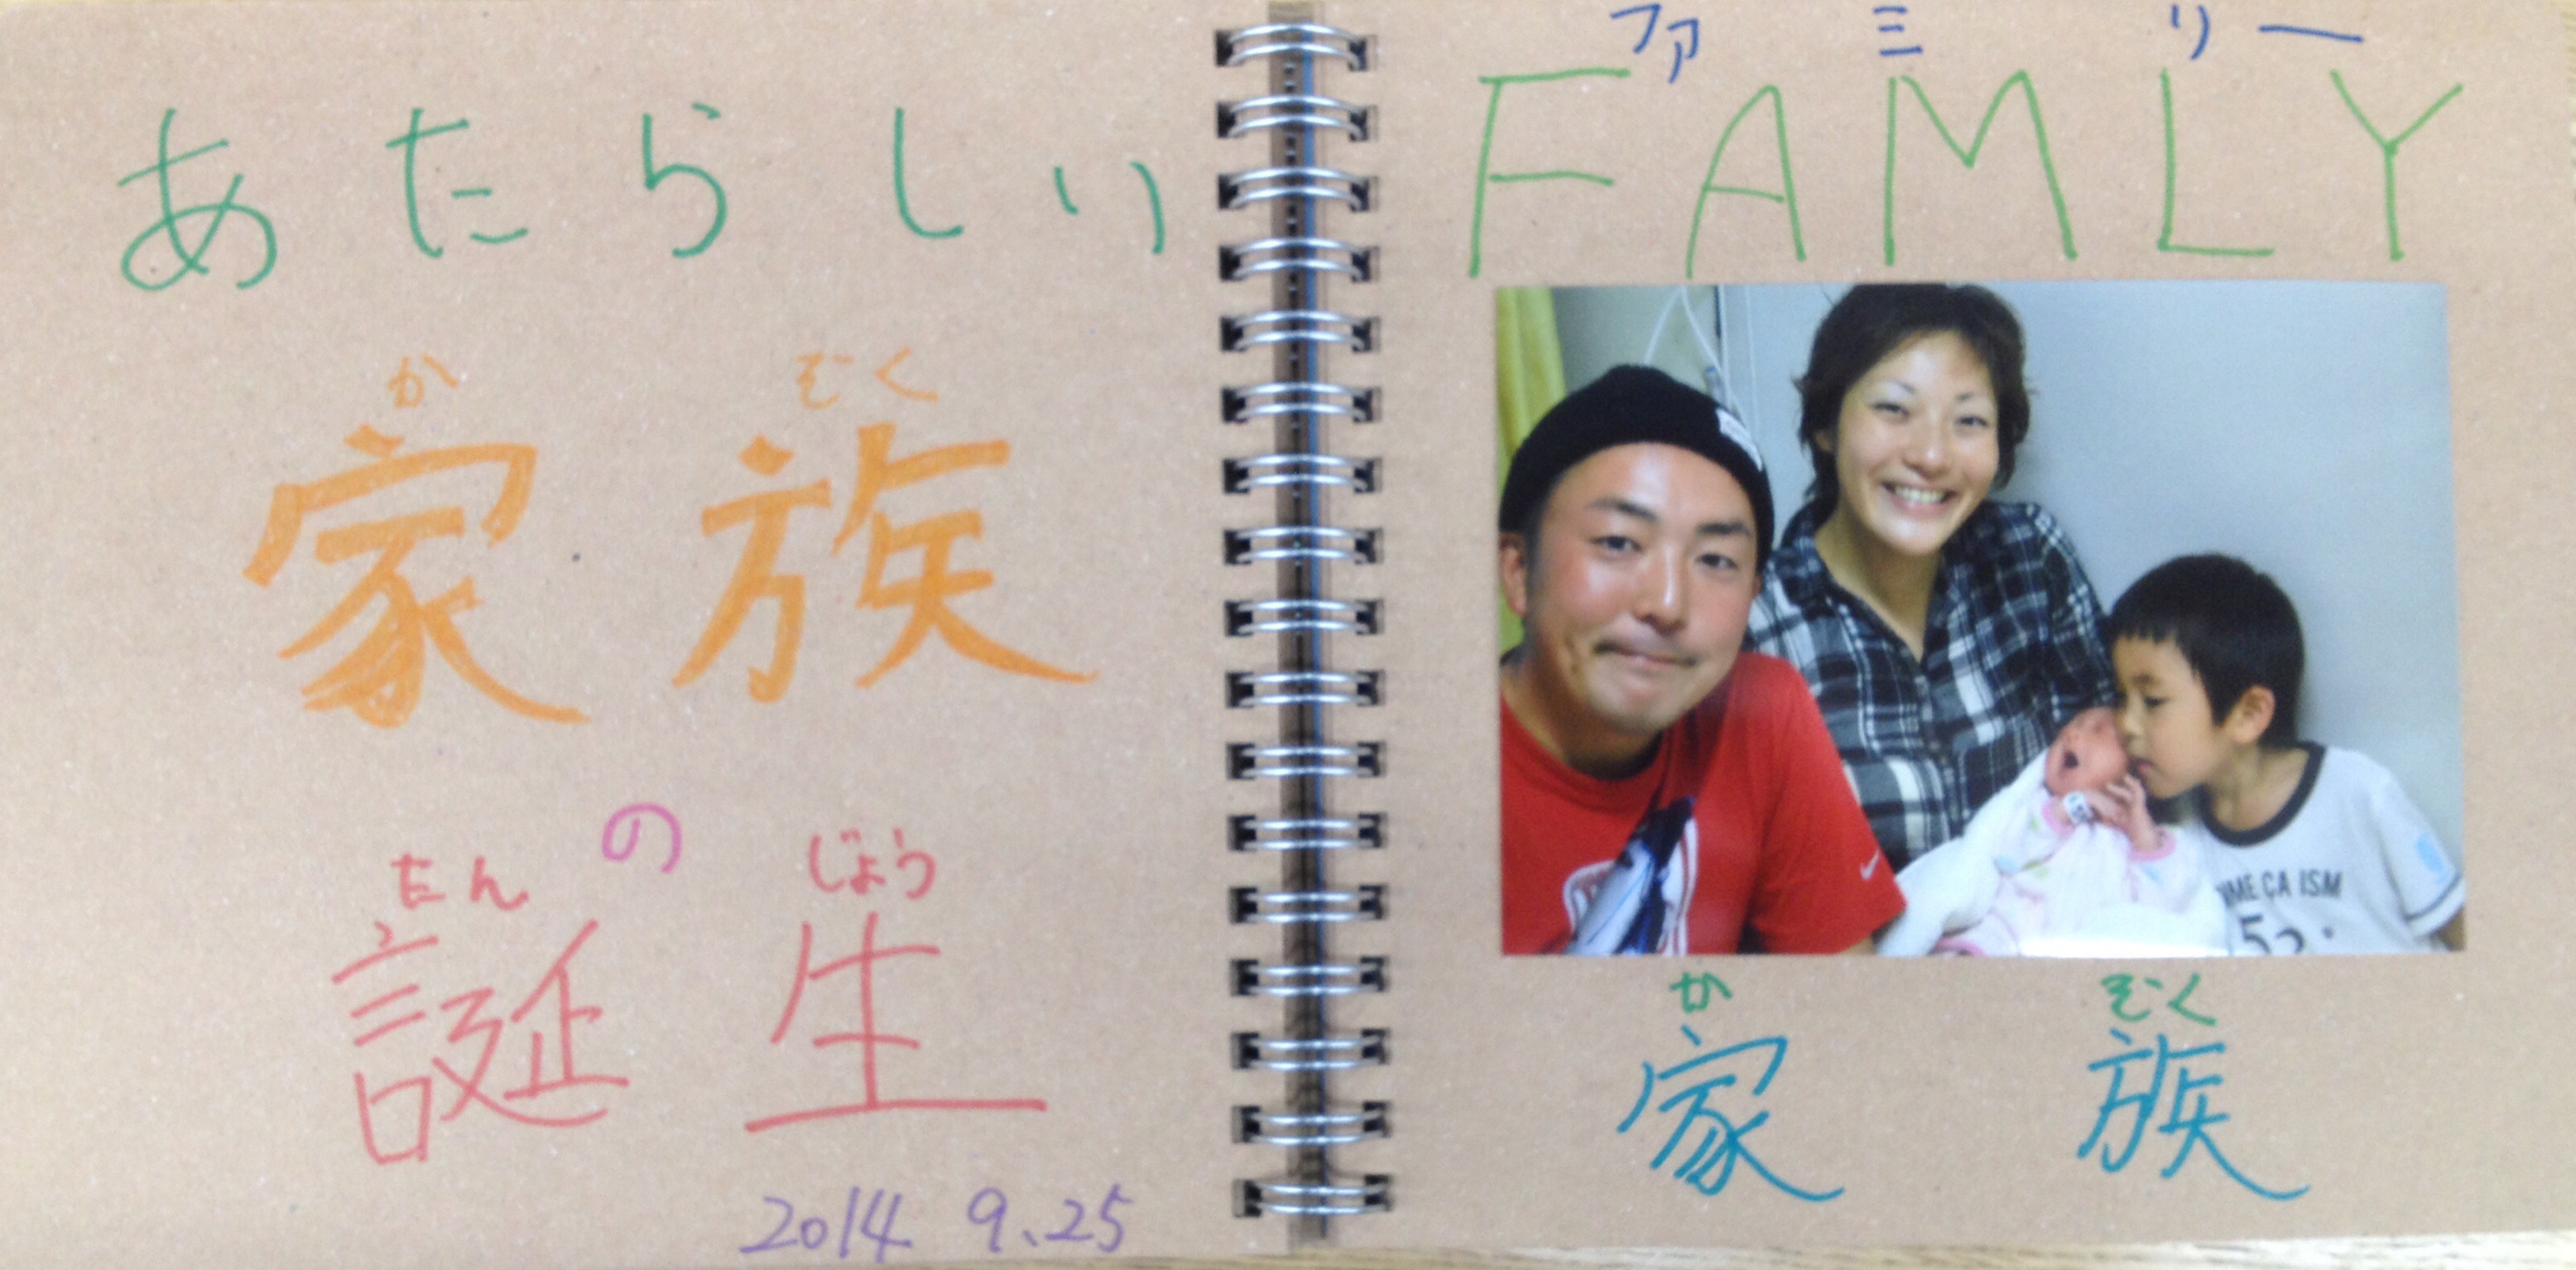 あたらしい
か ぞく
家族
の
たん じょう
誕生
2014 9.25
ファミリー
FAMLY
か ぞく
家族